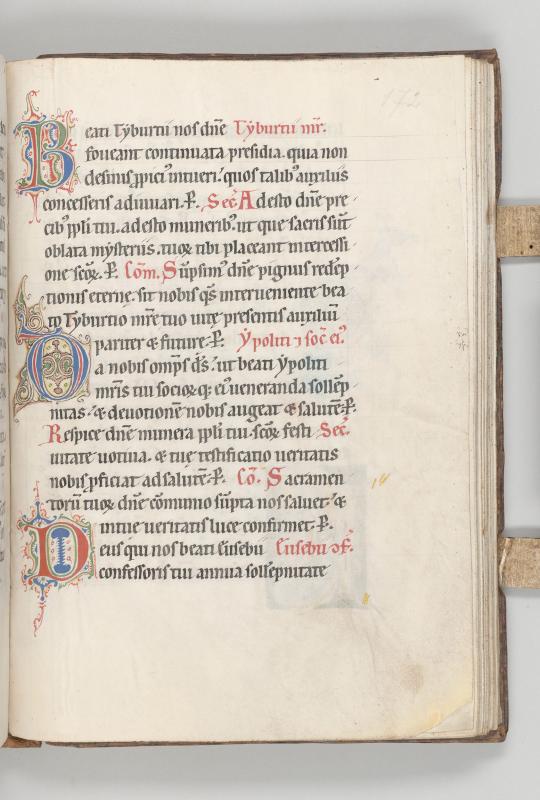 172
Beati Tyburtii nos dn̄e Tyburtii mr̄.
foveant continuata presidia. quia non
desinis ꝓpici᷒ intueri. quos talib᷒ auxiliis
concesseris adiuvari. P. Sec̄. Adesto dn̄e pre
cib᷒ ppli tui. adesto munerib᷒. ut que sacris sūt
oblata mysteriis. tuoꝝ tibi placeant intercessi
one sc̄oꝝ. P. Cōm. Sūpsim᷒ dn̄e pignus redēp
tionis eterne. sit nobis q̄s interveniente bea
to Tyburtio mr̄e tuo vite presentis auxiliū
pariter & future. P. Ypoliti ⁊ soc̄ ei᷒.
Da nobis omp̄s d̄s. ut beati Ypoliti
mr̄is tui socioꝝ q; ei᷒ veneranda sollēp
nitas. & devotionē nobis augeat & salutē. P.
Respice dn̄e munera ppli tui. sc̄oꝝ festi Sec̄.
vitate votiva. & tue testificatio veritatis
nobis ꝓficiat ad salutē. P. Cō. Sacramen
torū tuoꝝ dn̄e cōmunio sūpta nos salvet. &
in tue veritatis luce confirmet. P.
Deus qui nos beati Eusebii Eusebii ɔf̄.
confessoris tui annua sollēpnitate